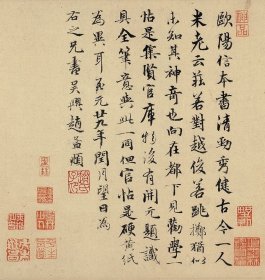 歐陽信本書清勁秀健古今一人
米老云莊若對越俊若跳擲猶似
未知其神奇也向在都下見勸學
帖是集賢官庫物後有開元題識
具全筆意與此一同但官帖是硬黃紙
為異耳至元廿九年閏月望日為
右之兄書吳興趙孟頫